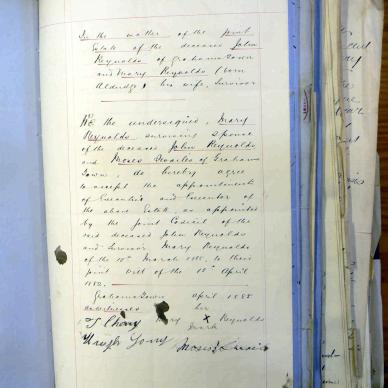 In the matter of the joint
Estate of the deceased John
Reynolds of Grahams Town
and Mary Reynolds (born
Aldridge) his wife, Survivor
We the undersigned, Mary
Reynolds surviving spouse
of the deceased John Reynolds
and Moses of Grahams
Town, do hereby agree
to accept the appointment
of Executrix and Executor of
the above Estate as appointed
by the joint Codicil of the
said deceased John Reynolds
and Survivor Mary Reynolds
of the March 1885 to their
joint Will of the 18th April
1882.
Grahams Town April 1885
her
Mary X Reynolds
mark
Moses